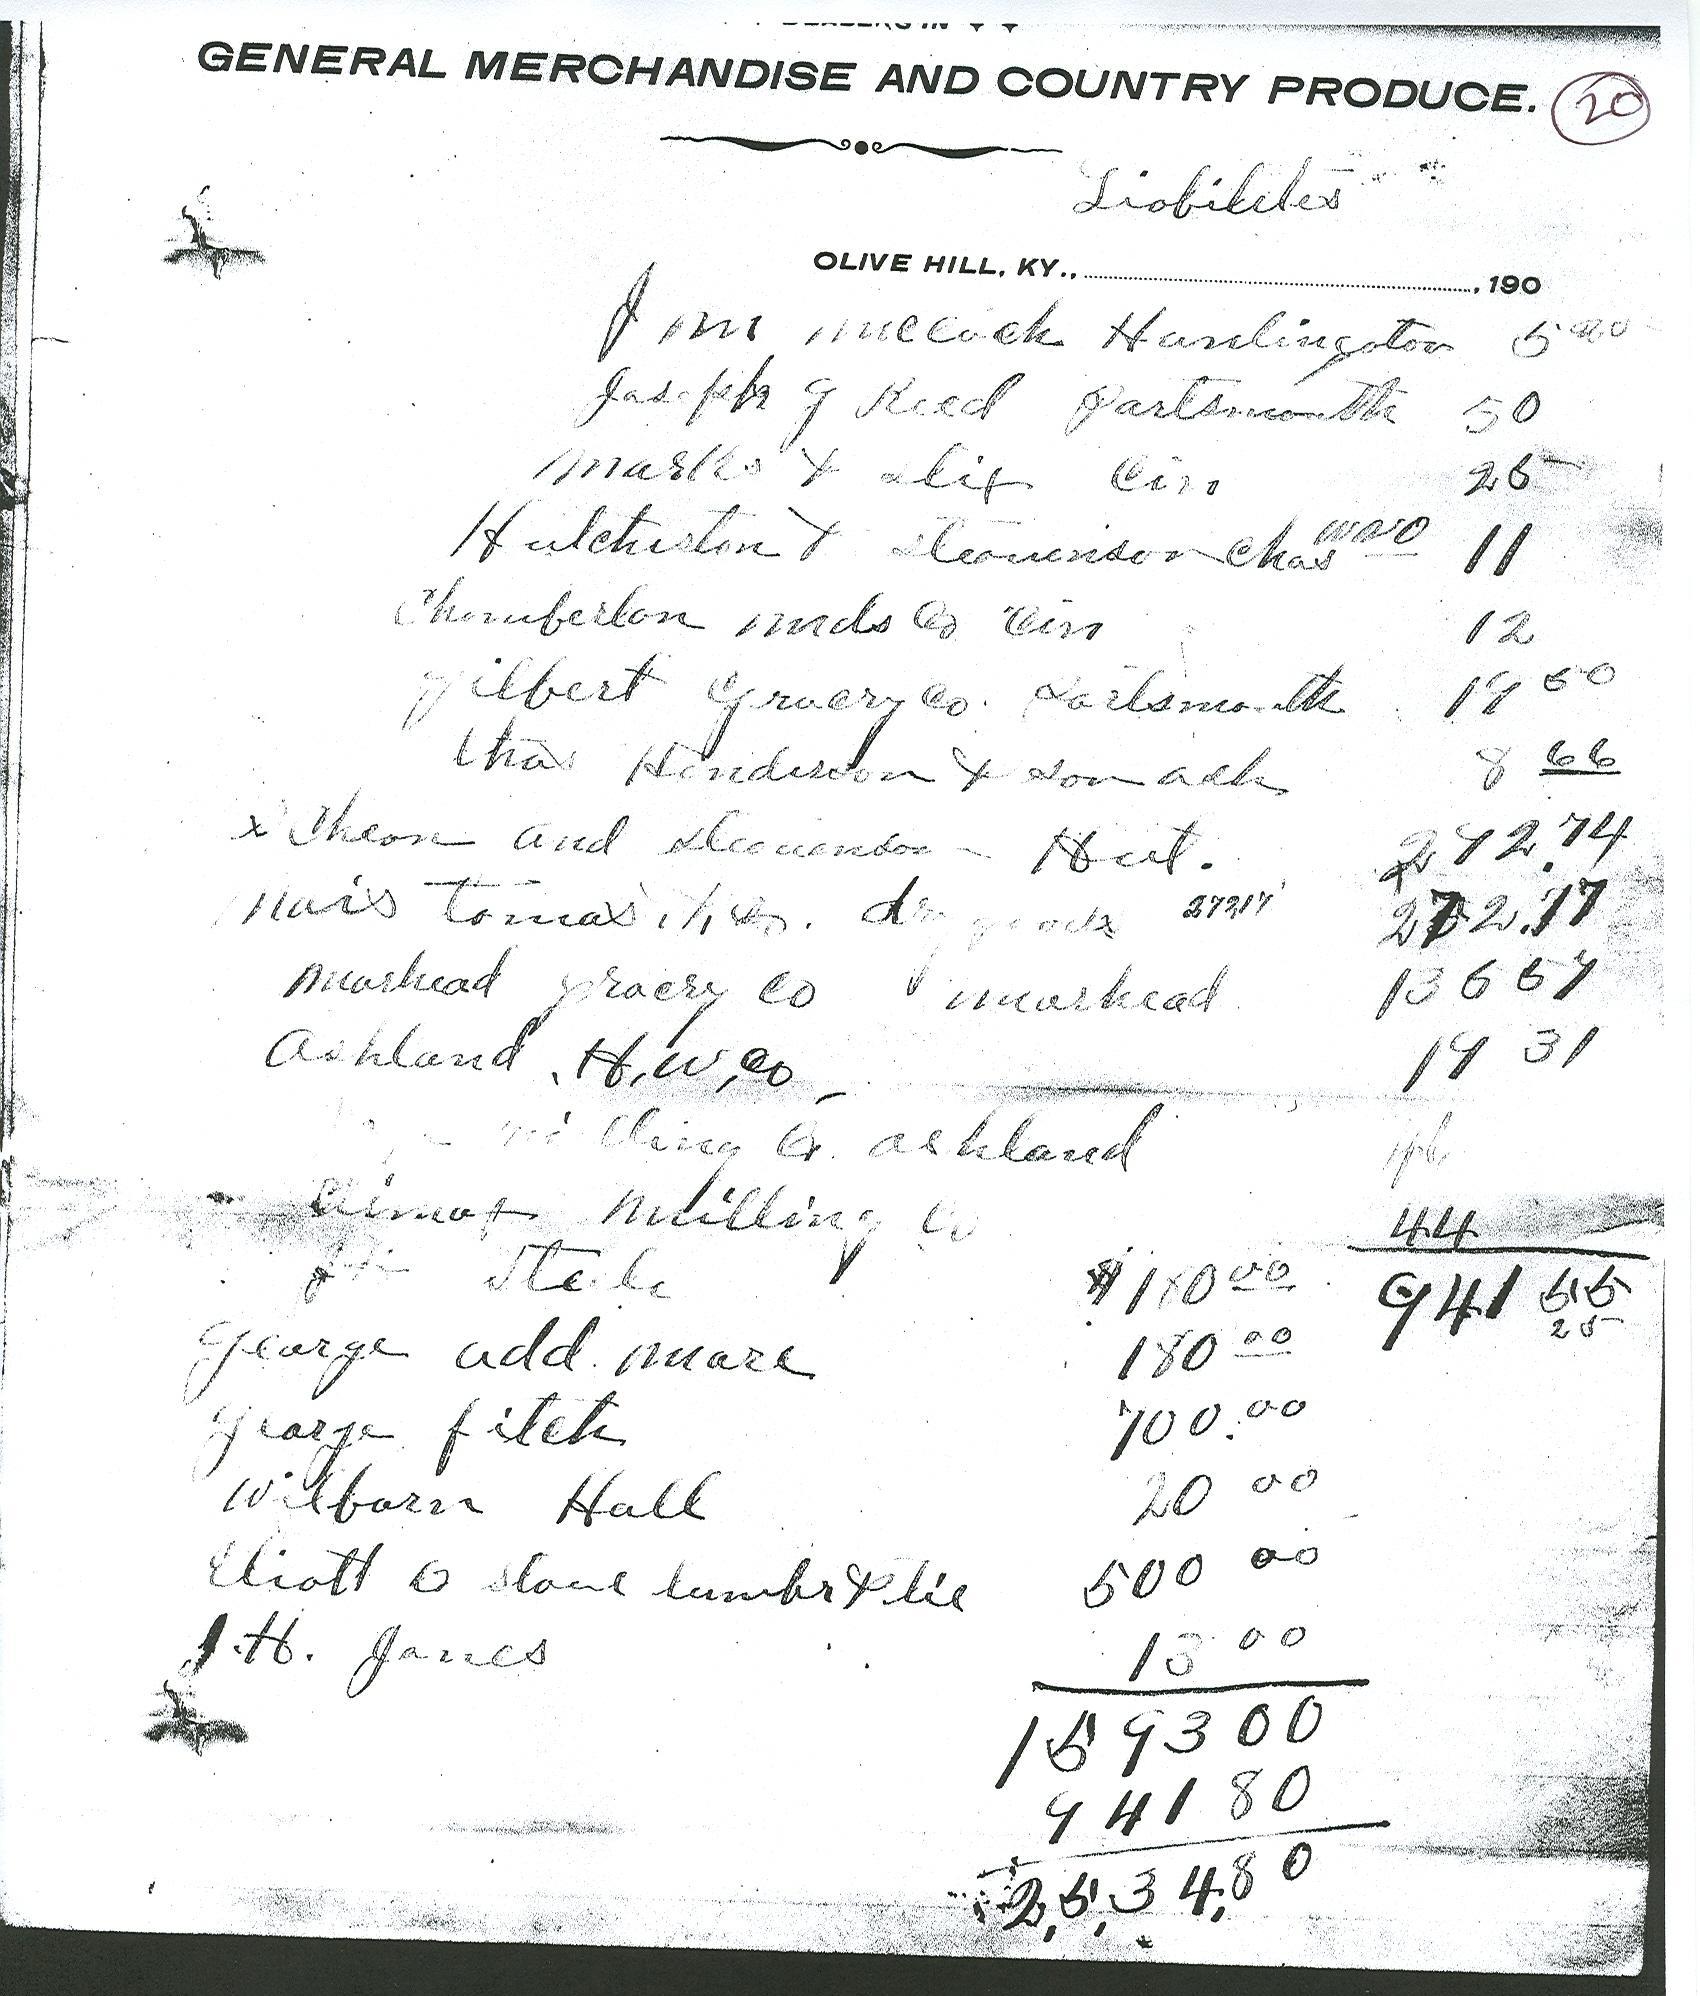 DEALERS IN
GENERAL MERCHANDISE AND COUNTRY PRODUCE. 20
Liabilites
OLIVE HILL, KY., , 190
J M Huntington 5 00
Joseph G Reed Partsmouth 50
Marks & Stix Cin 25
Hutchiston & Steauenson Chas 11
Chamberlan mds Co Cin 12
Gilbert Gracery Co. Partsmouth 19 50
Chas Henderson & Son ash 8 66
x and Steauenson Hunt. 272.74
tomas dry goods 27217 272.17
Marhead gracery Co marhead 136 67
Ashland H,W,Co 19 31
milling Co. ashland
Climax Milling Co 44
Steele $180 00 941 55
25
George add more 180 00
George fitch 700.00
Wilbarn Hall 20 00
Eliott & stone lumbr & tie 500 00
J.H. Janes 13 00
1593 00
941 80
2,5,34,80